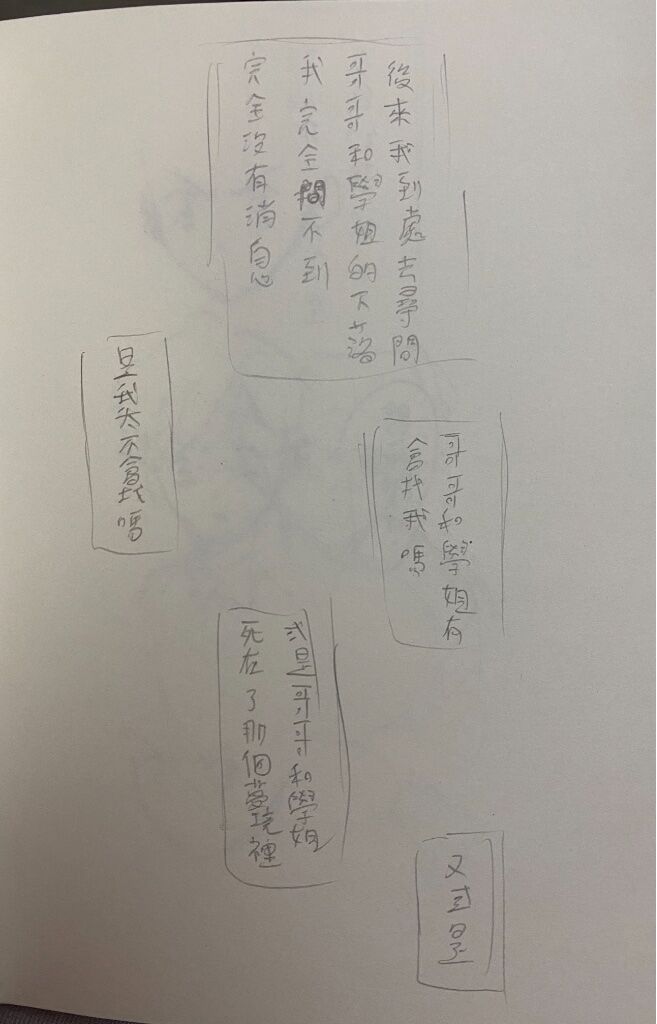 後來我到處去尋問
哥哥和學姐的下落
我完全問不到
完全沒有消息
哥哥和學姐有
會找我嗎
是我太不會找嗎
或是哥哥和學姐
死在了那個夢境裡
又或是